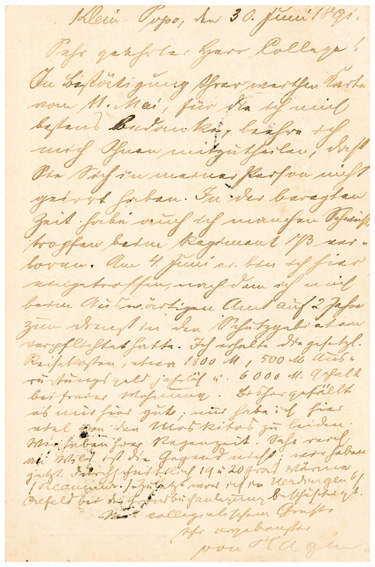 Klein-Popo, den 30. Juni 1891.
Sehr geehrter Herr College!
In Bestätigung Ihrer werthen Karte
vom 11. Mai, für die ich mich
bestens bedanke, beehre ich
mich Ihnen mitzutheilen, daß
Sie Sich in meiner Person nicht
geirrt haben. In der beregten
Zeit habe auch ich manchen Schweiß-
tropfen beim Regiment 173 ver-
loren. Am 4 Juni er. bin ich hier
eingetroffen, nach dem ich mich
beim Auswärtigen Amt auf 2 Jahre
zum Dienst in den Schutzgebieten
verpflichtet hatte. Ich erhalte die gesetzl.
Reisekosten, etwa 1800 M, 500 M Aus-
rüstungsgeld jährlich u. 6000 M. Gehalt
bei freier Wohnung. Bisher gefällt
es mir hier gut; nur habe ich hier
viel von den Moskitos zu leiden.
Wir haben hier Regenzeit. Sehr reich
an Wild ist die Gegend nicht; wir haben
jetzt durchschnittlich 19 u 20 Grad Wärme
Réaumur. zuletzt war ich in Uerdingen b/
Crefeld bei der beschäftigt.
Mit collegialischem Gruße
Ihr ergebenster
von Hagen